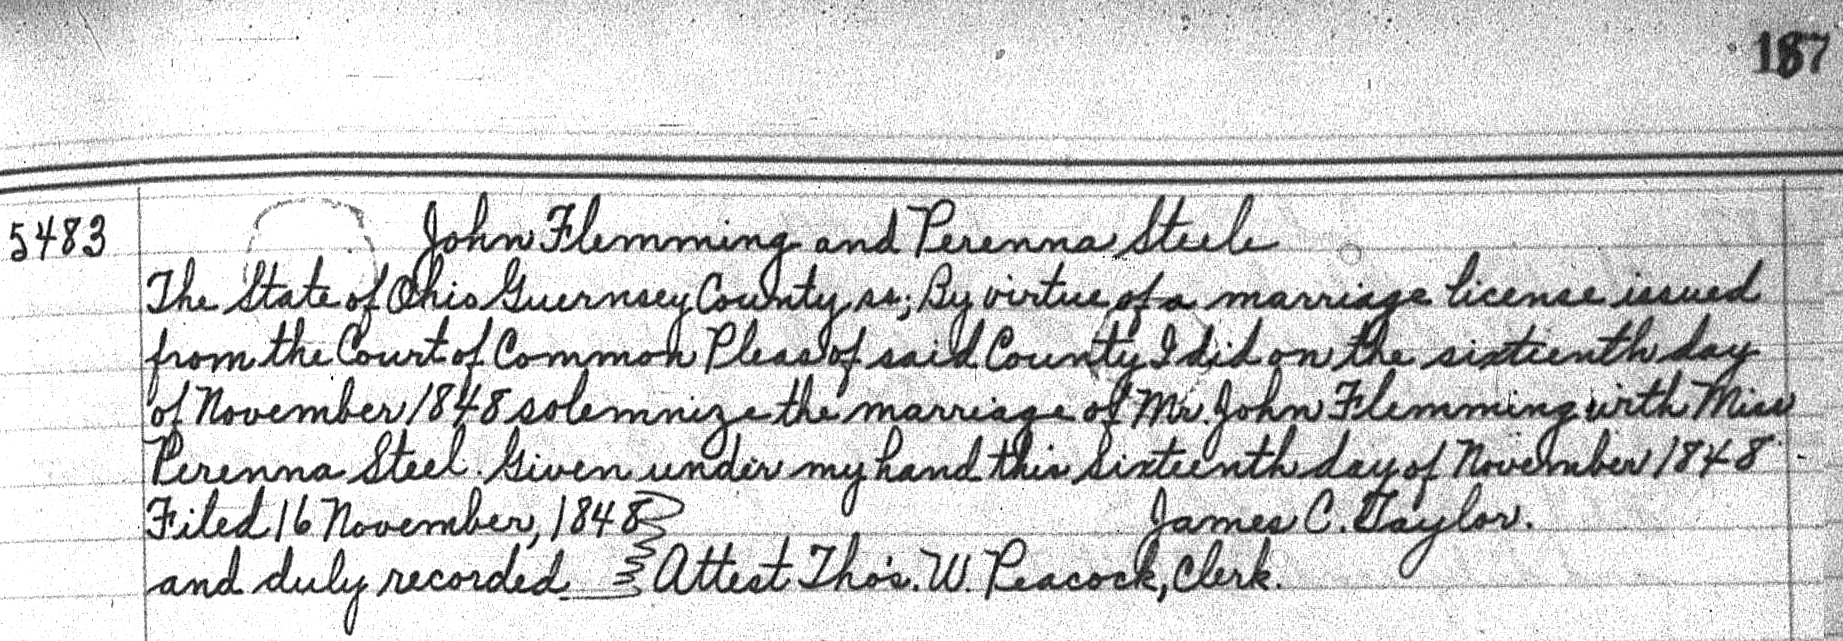 187
5483 John Flemming and Perenna Steele
The State of Ohio Guernsey County ss; By virtue of a marriage license issued
from the Court of Common Pleas of said County I did on the sixtienth day
of November 1848 solemnize the marriage of Mr. John Flemming with Miss
Perenna Steel. Given under my hand this Sixteenth day of November 1848
Filed 16 November, 1848 James C. Taylor.
and duly recorded Attest Thos. W. Peacock, Clerk.